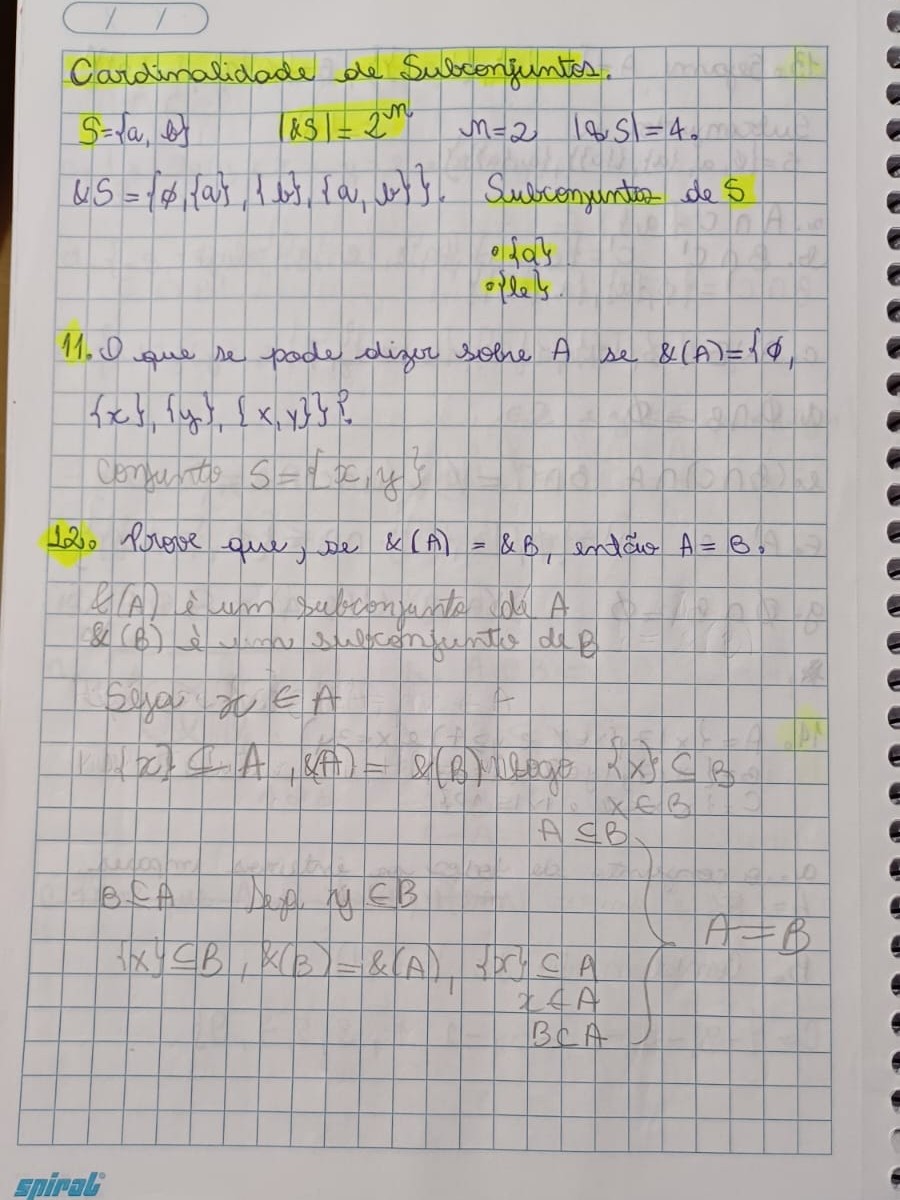 Cardinalidade de Subconjuntos.
S={a, b} |&S|= 2ⁿ n=2 |&S|=4.
&S = {ø,{a}, {b}, {a, b}}. Subconjuntos de S
•{a}
•{b}.
11. O que se pode dizer sobre A se &(A)={ø,
{x}, {y}, {x,y}}?
Conjunto S={x,y}
12. Prove que, se &(A) = &B, então A=B.
&(A) è um subconjunto de A
&(B) è um subconjunto de B
Seja x ∈ A
{x} ⊆ A, &(A) = &(B) logo {x} ⊆ B
x ∈ B
A ⊆ B
B ⊂ A Seja y ∈ B
A = B
{x} ⊆ B, &(B) = &(A), {x} ⊆ A
x ∈ A
B ⊂ A
spiral